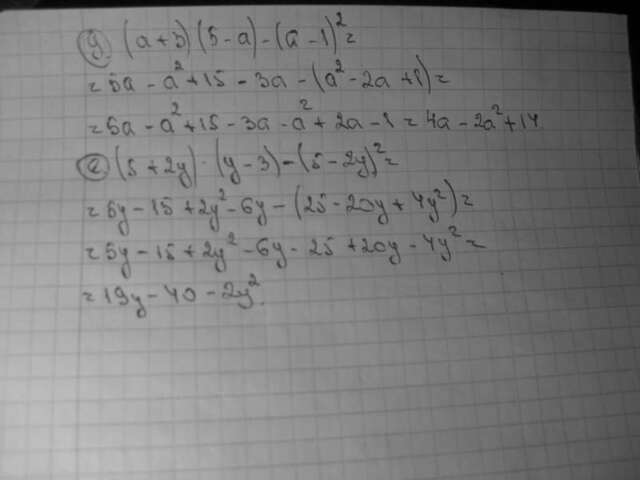 g) (a+3)(5-a)-(a-1)²=
=5a-a²+15-3a-(a²-2a+1)=
=5a-a²+15-3a-a²+2a-1=4a-2a²+14
e) (5+2y)·(y-3)-(5-2y)²=
=5y-15+2y²-6y-(25-20y+4y²)=
=5y-15+2y²-6y-25+20y-4y²=
=19y-40-2y².